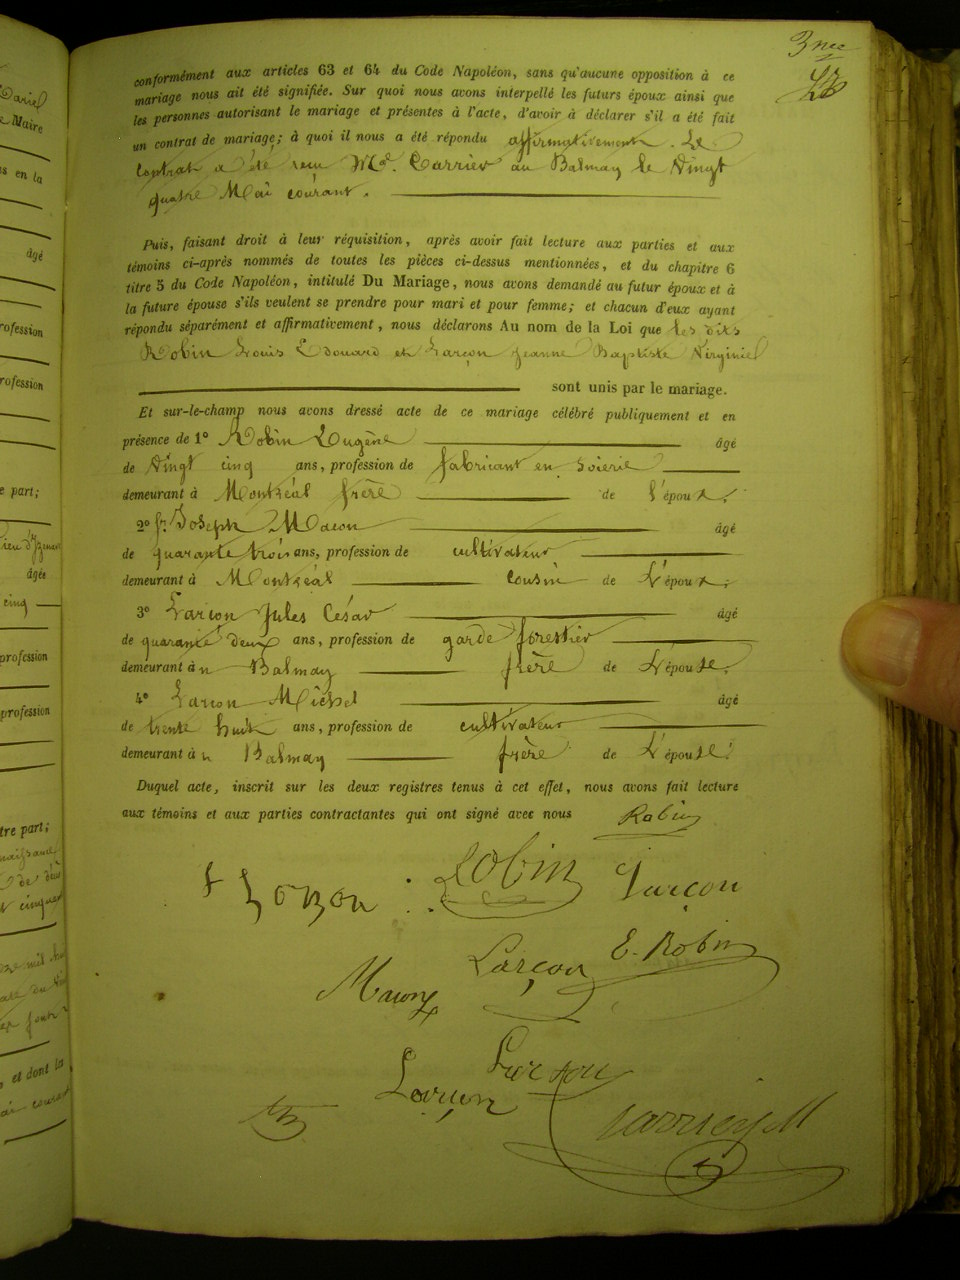 3 nce
conformément aux articles 63 et 64 du Code Napoléon, sans qu'aucune opposition à ce
mariage nous ait été signifiée. Sur quoi nous avons interpellé les futurs époux ainsi que
les personnes autorisant le mariage et présentes à l'acte, d'avoir à déclarer s'il a été fait
un contrat de mariage; à quoi il nous a été répondu affirmativement. Le
contrat a été recu Md. Carrier au Balmay le Vingt
quatre Mai courant.
Puis, faisant droit à leur réquisition, après avoir fait lecture aux parties et aux
témoins ci-après nommés de toutes les pièces ci-dessus mentionnées, et du chapitre 6
titre 5 du Code Napoléon, intitulé Du Mariage, nous avons demandé au futur époux et à
la future épouse s'ils veulent se prendre pour mari et pour femme; et chacun d'eux ayant
répondu séparément et affirmativement, nous déclarons Au nom de la Loi que les dits
Robin Louis Edouard et Larçon Jeanne Baptiste Virginie
sont unis par le mariage.
Et sur-le-champ nous avons dressé acte de ce mariage célébré publiquement et en
présence de 1° Robin Eugène âgé
de Vingt cinq ans, profession de fabricant en soierie
demeurant à Montréal frère de l'époux;
2° Joseph Macon âgé
de quarante trois ans, profession de cultivateur
demeurant à Montréal cousin de L'époux;
3° Larçon Jules César âgé
de quarante deux ans, profession de garde forestier
demeurant au Balmay frère de L'épouse;
4° Larçon Michel âgé
de trente huit ans, profession de cultivateur
demeurant au Balmay frère de L'épouse;
Duquel acte, inscrit sur les deux registres tenus à cet effet, nous avons fait lecture
aux témoins et aux parties contractantes qui ont signé avec nous Robin
Robin Larçon
Larçon E. Robin
Macon
Larçon
Larçon